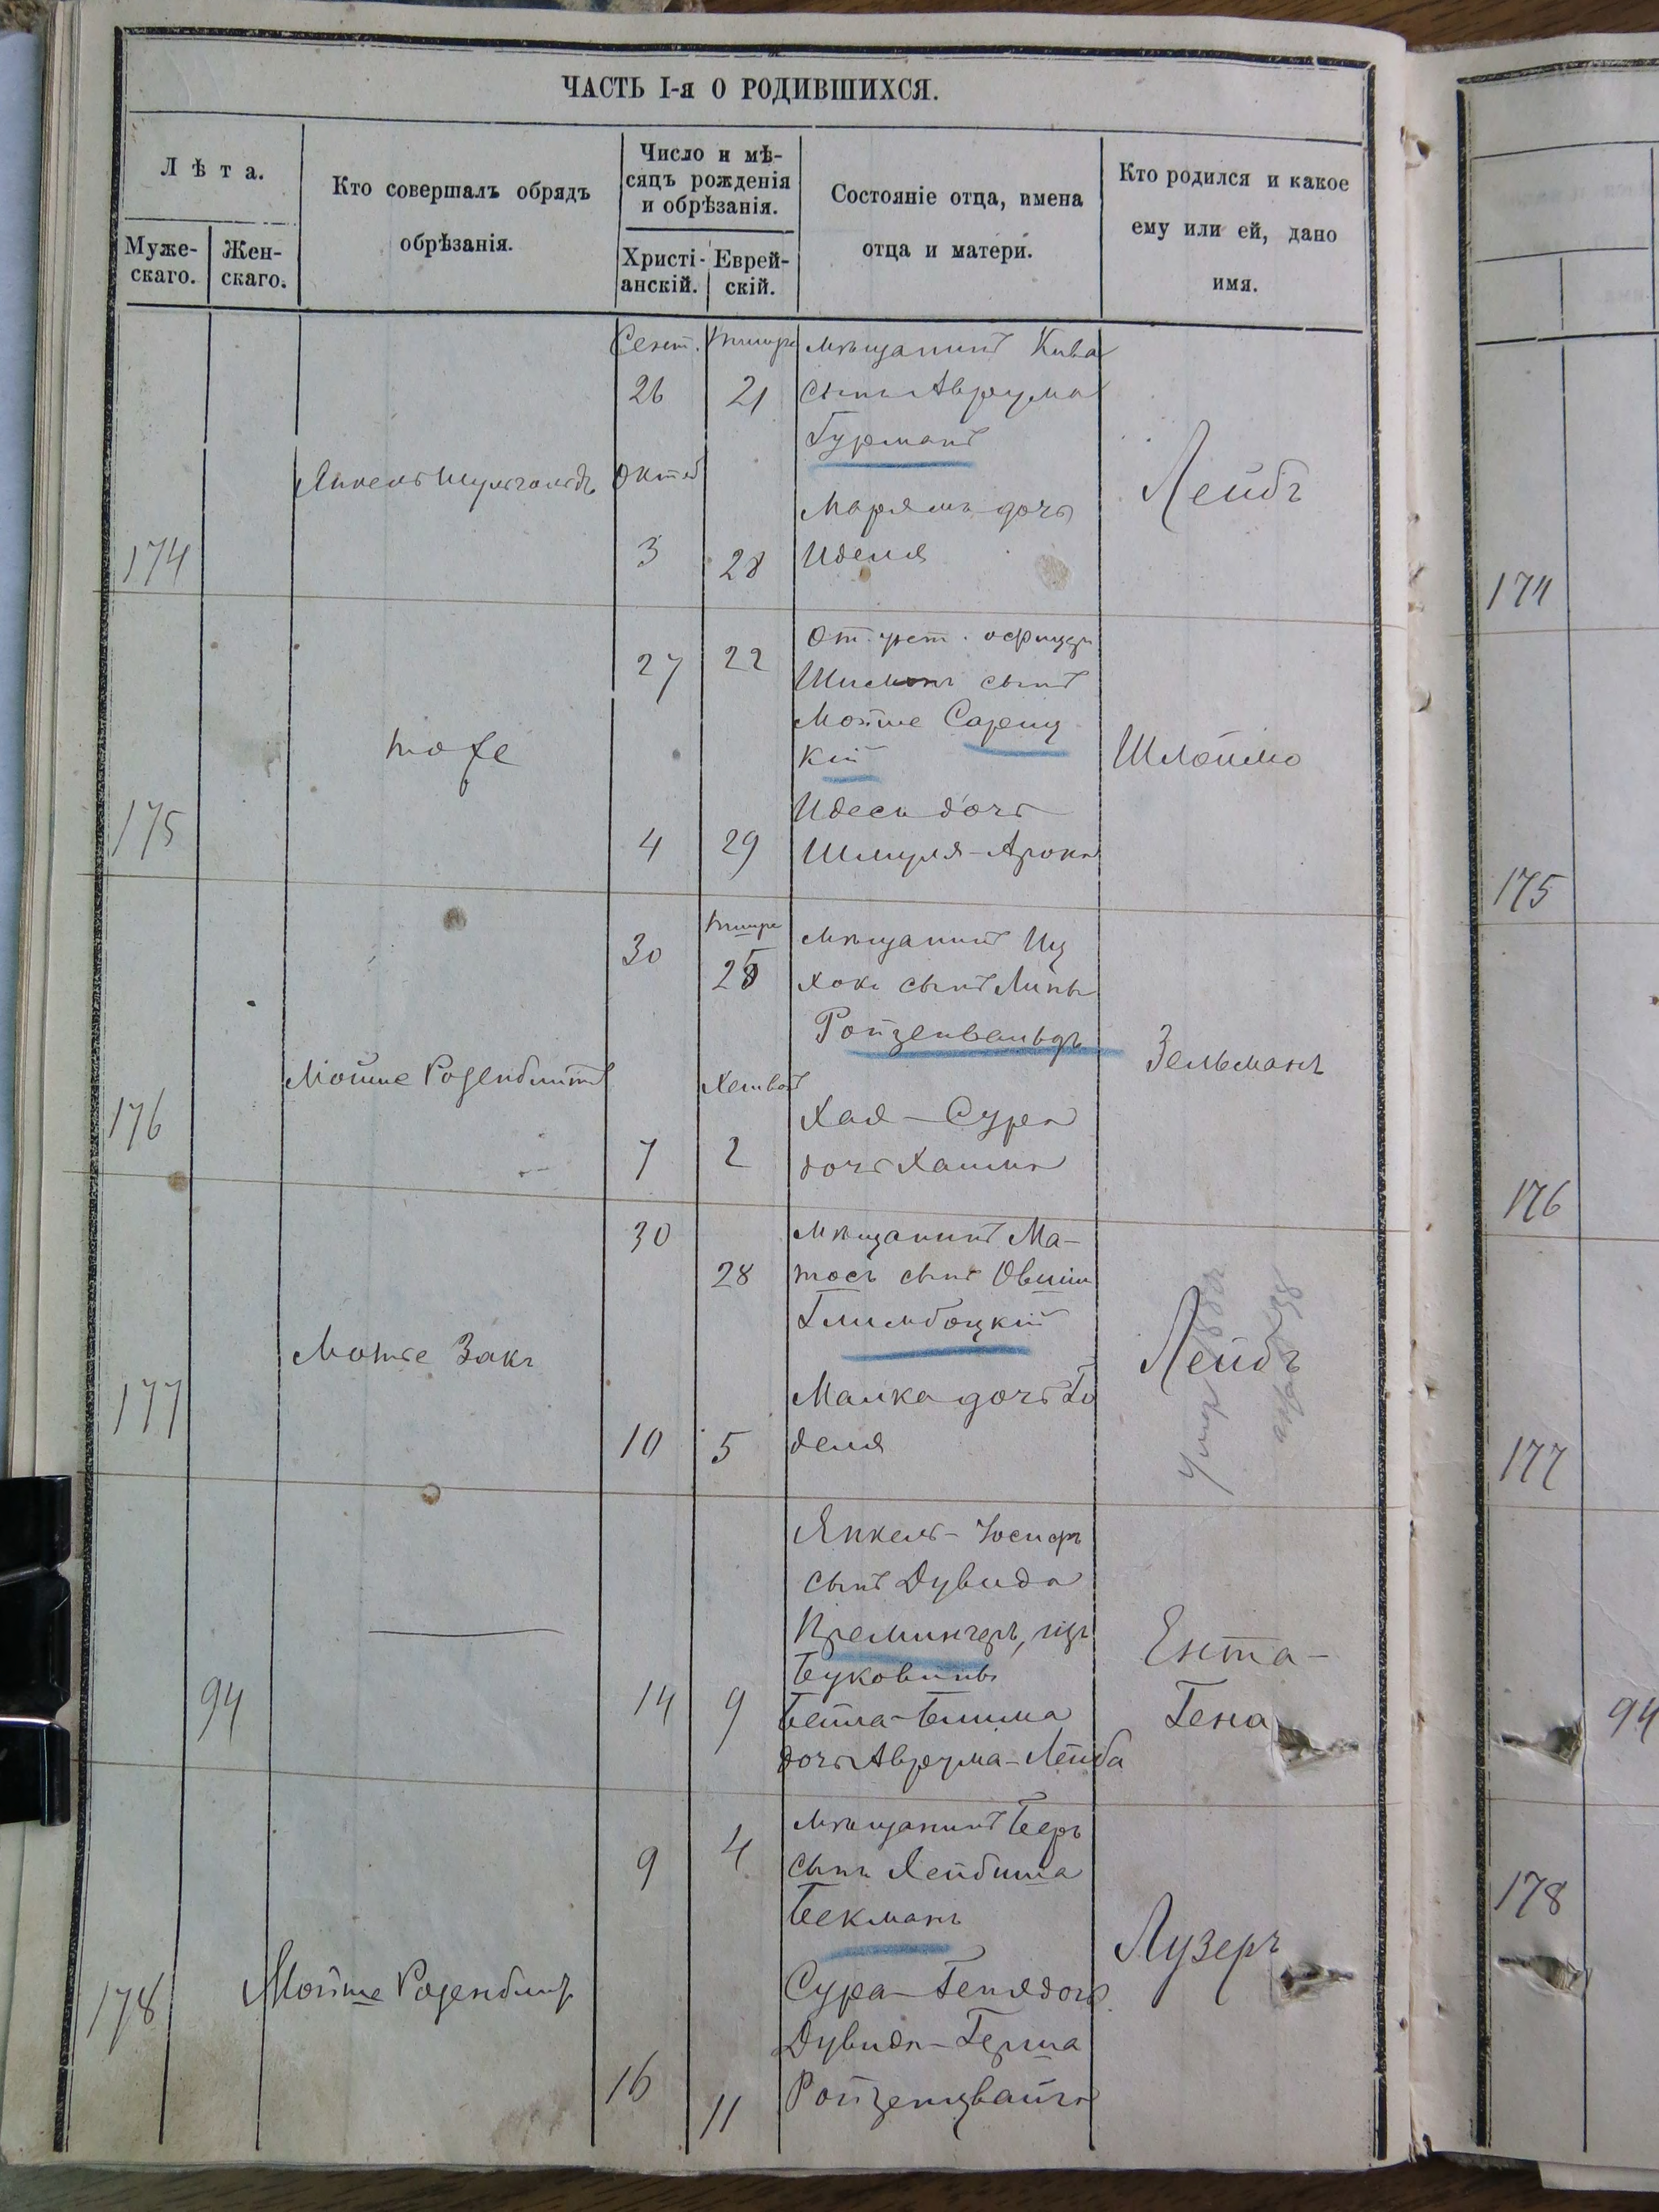 ЧАСТЬ I-я О РОДИВШИХСЯ.
Лѣта.
Муже-
скаго.
Жен-
скаго.
Кто совершалъ обрядъ
обрѣзанія.
Число и мѣ-
сяцъ рожденія
и обрѣзанія.
Христі-
анскій.
Еврей-
скій.
Состояніе отца, имена
отца и матери.
Кто родился и какое
ему или ей, дано
имя.
174
Сент. Тишре
26 21
Октяб
3 28
мѣщанинъ Кива
сынъ Аврума
Гурманъ
Марямъ дочь
Иделя
Лейбъ
175
тоже
27 22
4 29
Шимонъ сынъ
Мойше Сарец
кій
Идесъ дочь
Шмуля-Арона
Шлоймо
176
Мойше Розенблитъ
30
Тишре
25
7
Хешвон
2
мѣщанинъ Иц
хокъ сынъ Липы
Ройзенвальдъ
Хая-Сура
дочь Хаима
Зельманъ
177
Мотье Закъ
30 28
10 5
мѣщанинъ Ма-
тосъ сынъ Овшіи
Глимбоцкій
Малка дочь Го
деля
Лейбъ
94
14 9
Янкель-Іосифъ
сынъ Дувида
Кремничеръ, изъ
Буковины
Бейла-Блима
дочь Аврума-Лейба
Ента-
Гена
178
Мойше Розенблитъ
9 4
16 11
мѣщанинъ Беръ
сынъ Лейбиша
Бекманъ
Сура-Геня дочь
Дувида-Герша
Ройзенцвайга
Лузеръ
174
175
176
177
94
178